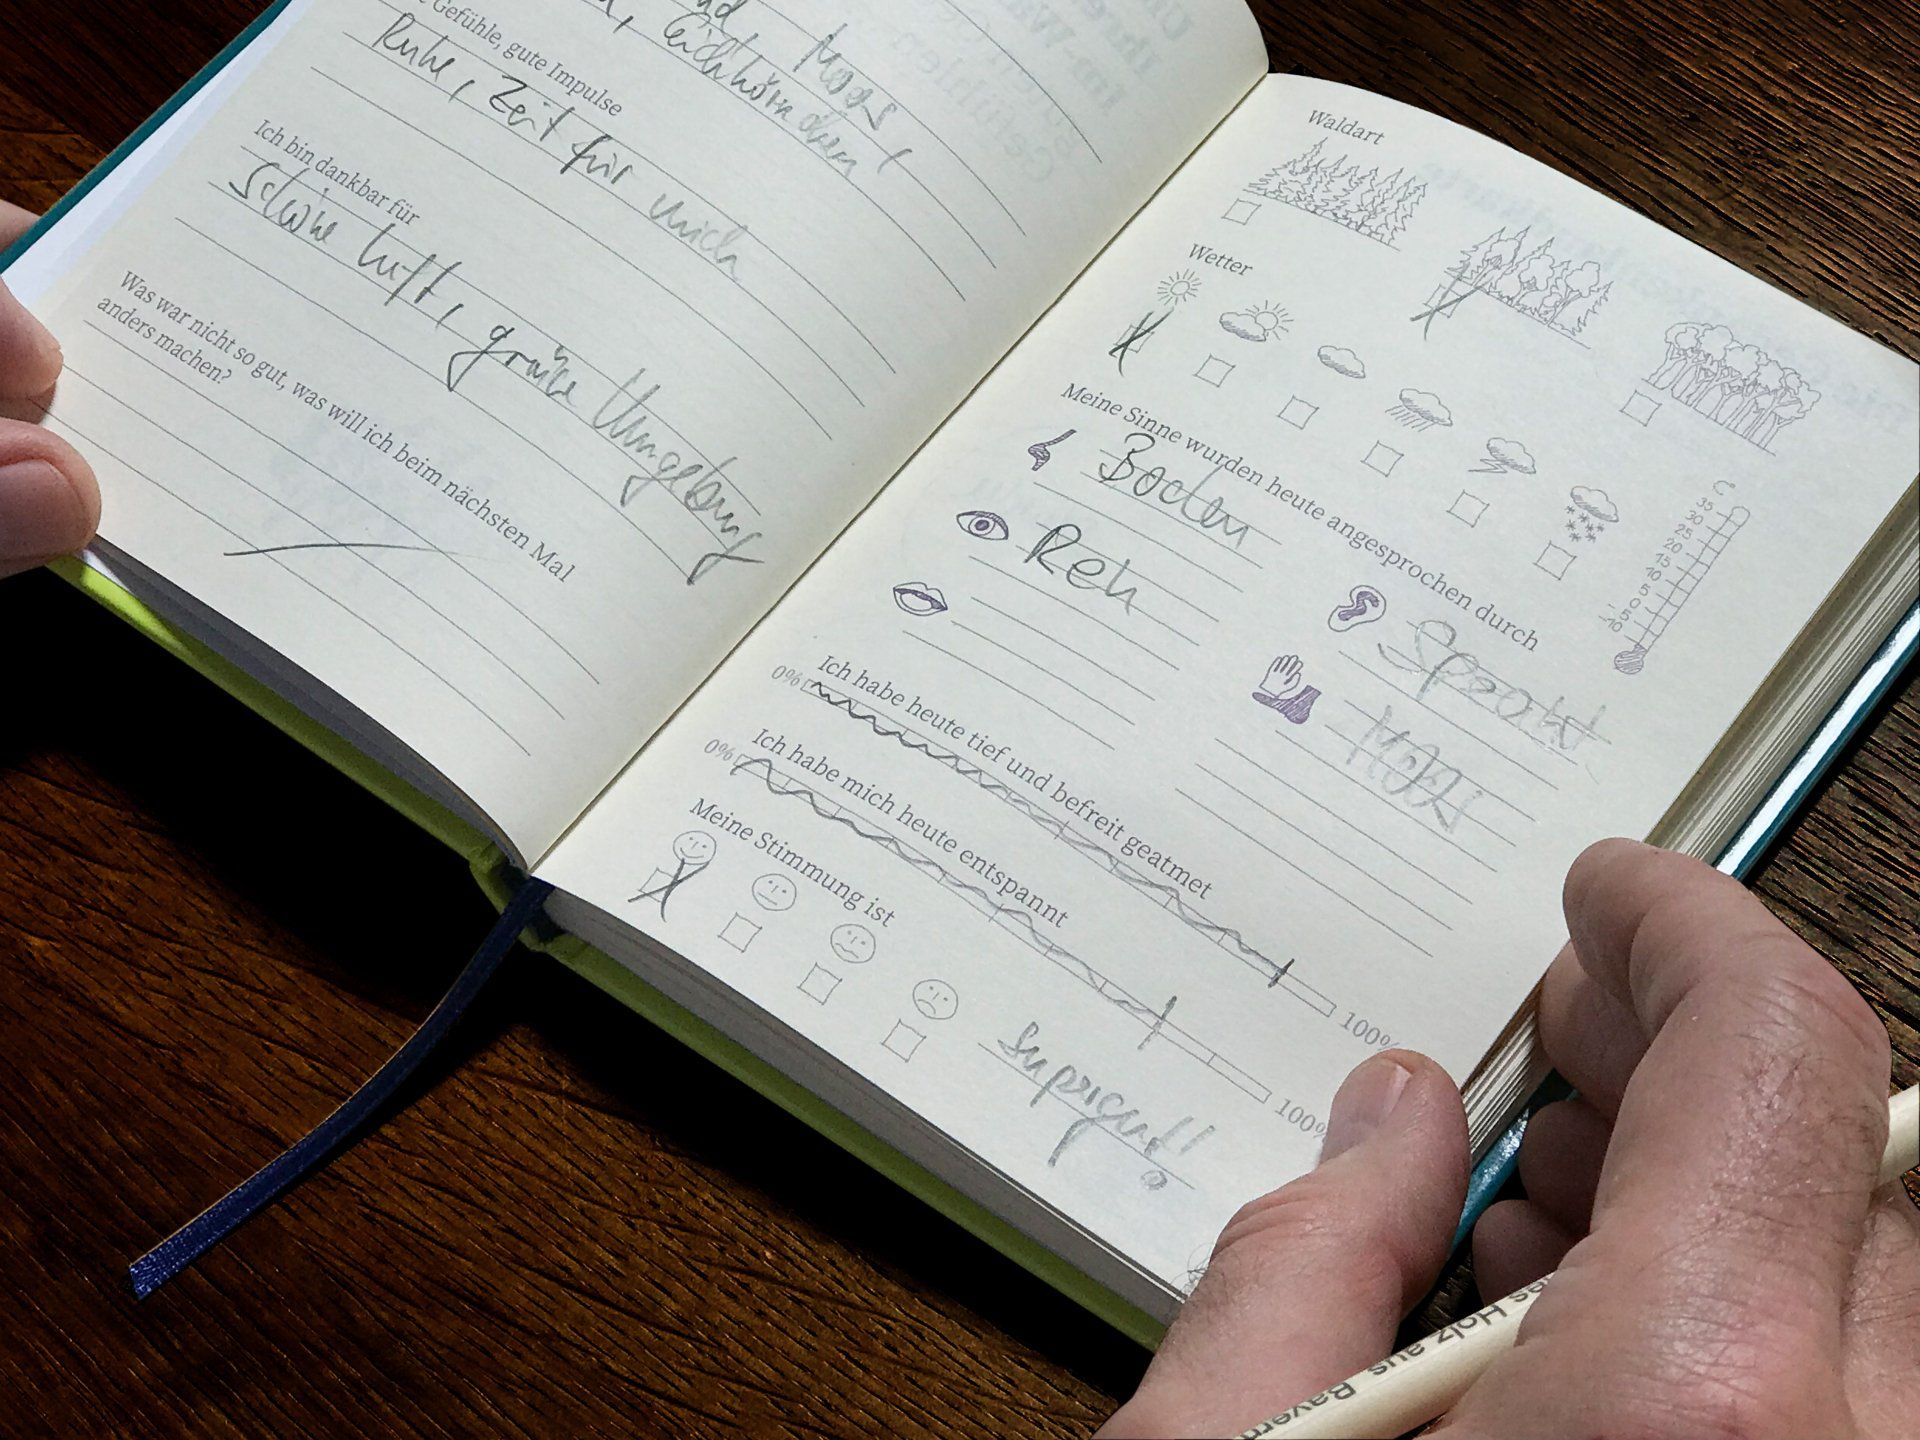 Moos
, Eichhörnchen!
Gefühle, gute Impulse
Ruhe, Zeit für mich
Ich bin dankbar für
schöne Luft, grüne Umgebung
Was war nicht so gut, was will ich beim nächsten Mal
anders machen?
Waldart
Wetter
°C
35
30
25
20
15
10
5
0
-5
-10
Meine Sinne wurden heute angesprochen durch
Boden
Reh
Specht
Moos
Ich habe heute tief und befreit geatmet
0% 100%
Ich habe mich heute entspannt
0% 100%
Meine Stimmung ist
supergut!
es Holz aus Bayern